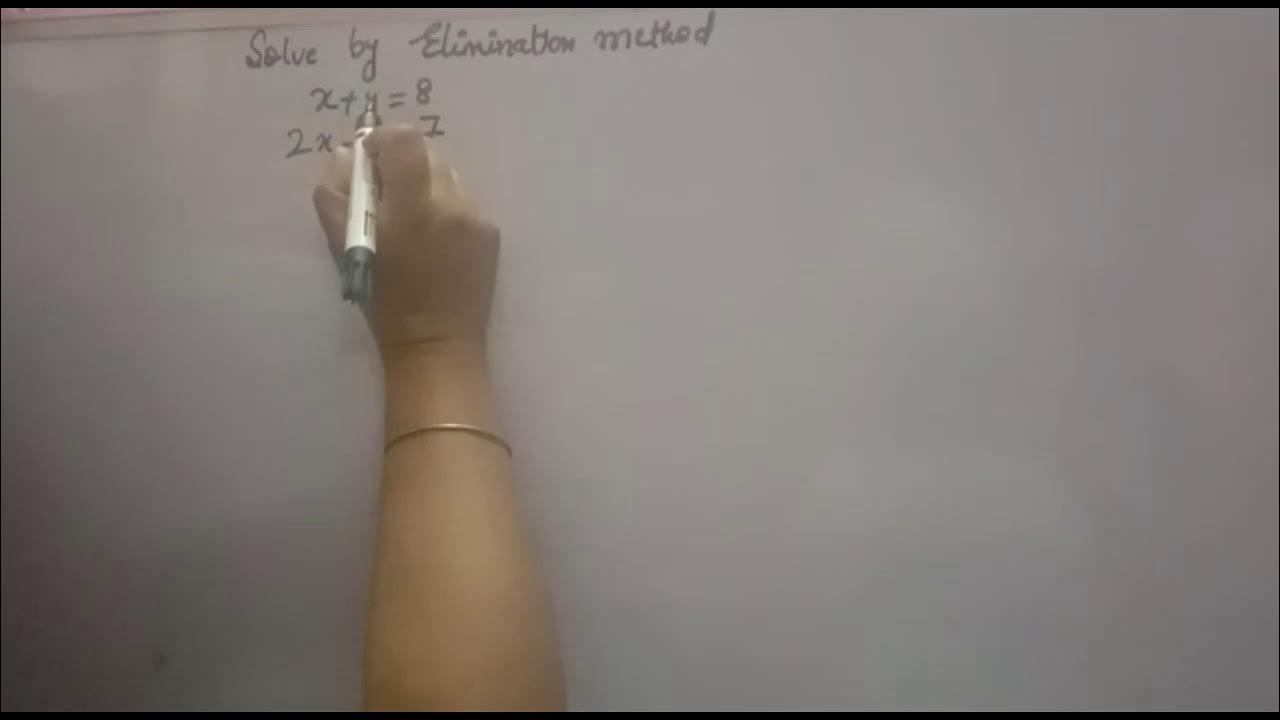 Solve by Elimination method
x + y = 8
2x - 7